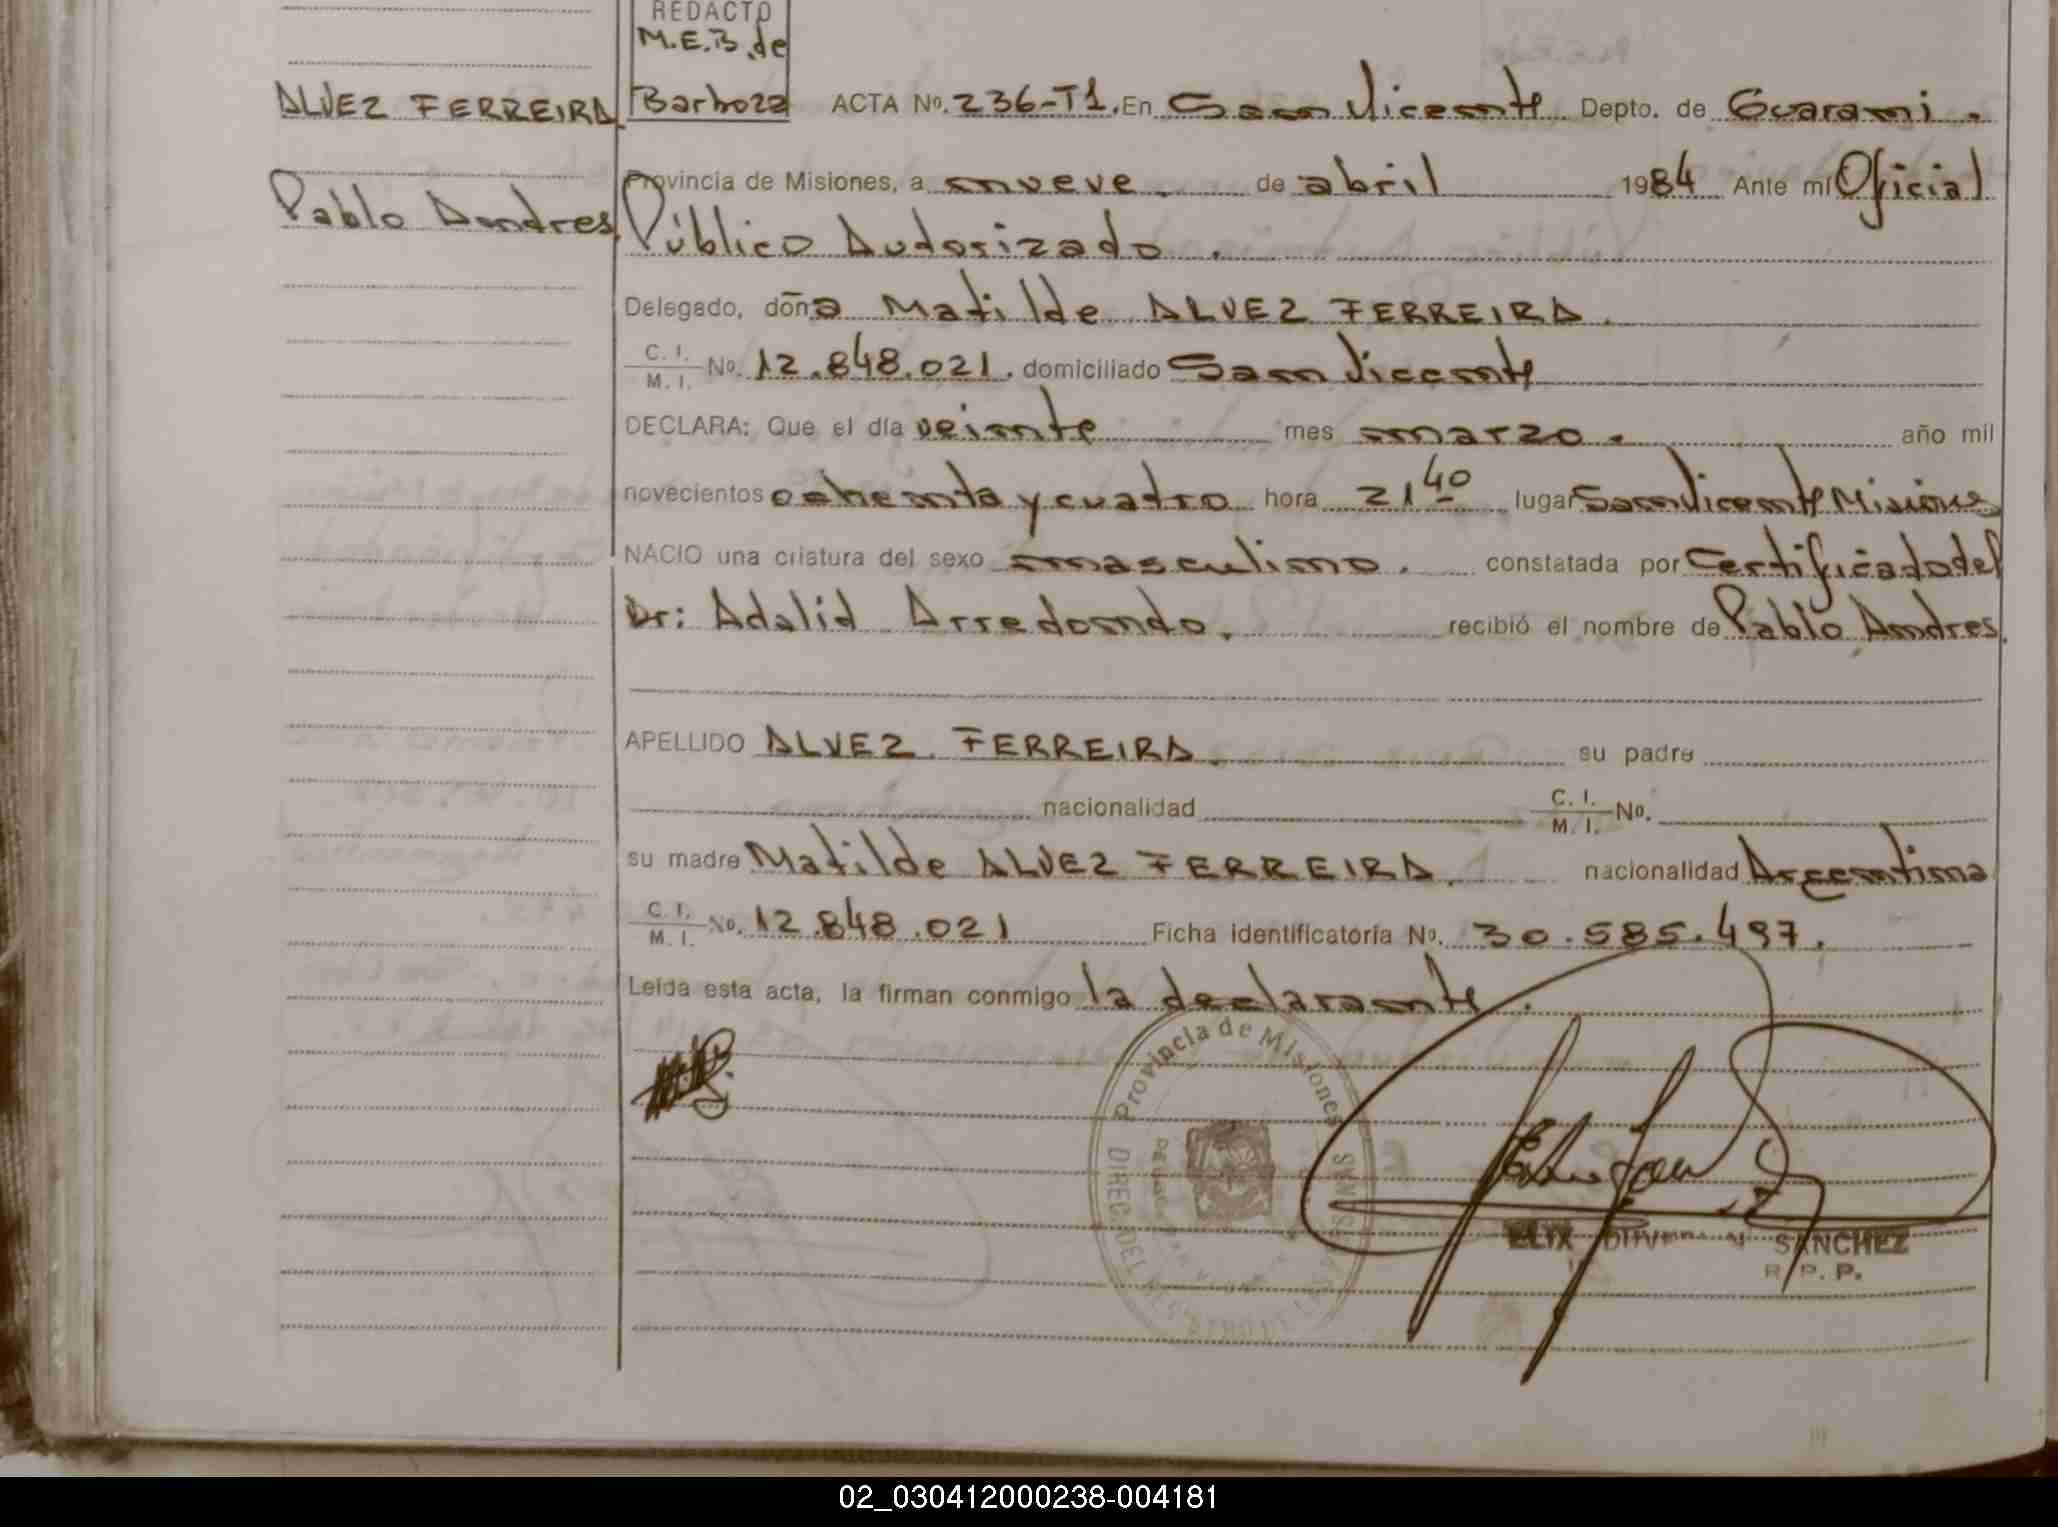 REDACTO
M.E.B. de
Barboza
ALVEZ FERREIRA
Pablo Andres
ACTA No. 236-T1. En San Vicente Depto. de Guarani.
Provincia de Misiones, a nueve. de abril 1984 Ante mí Oficial
Público Autorizado.
Delegado, doña Matilde ALVEZ FERREIRA.
C. I.
M. I. No. 12.848.021. domiciliado San Vicente
DECLARA: Que el día veinte mes marzo. año mil
novecientos ochenta y cuatro hora 21 40 lugar San Vicente Misiones
NACIO una criatura del sexo masculino. constatada por Certificado del
Dr: Adalid Arredondo. recibió el nombre de Pablo Andres.
APELLIDO ALVEZ FERREIRA. su padre
nacionalidad C. I.
M. I. No.
su madre Matilde ALVEZ FERREIRA. nacionalidad Argentina
C. I.
M. I. No. 12.848.021 Ficha identificatoria No. 30.585.497.
Leída esta acta, la firman conmigo la declarante.
Provincia de Misiones
DIREC. DEL
SANCHEZ
R. P. P.
02_030412000238-004181